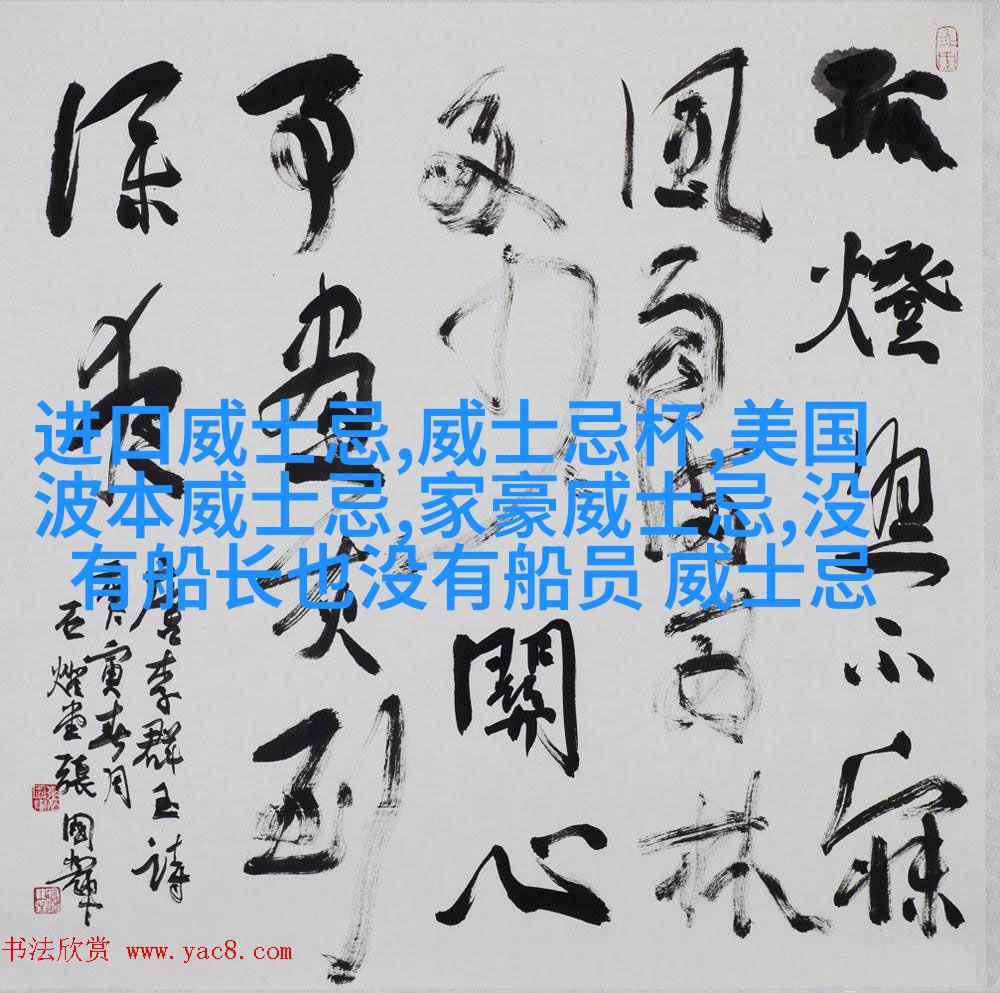 孤燈照不寐
風雨滿西林
多少關心
事畫灰到
深夜
唐李群玉詩
寅春月
張國
进口威士忌,威士忌杯,美国
波本威士忌,家豪威士忌,没
有船长也没有船员 威士忌
书法欣赏 www.yac8.com